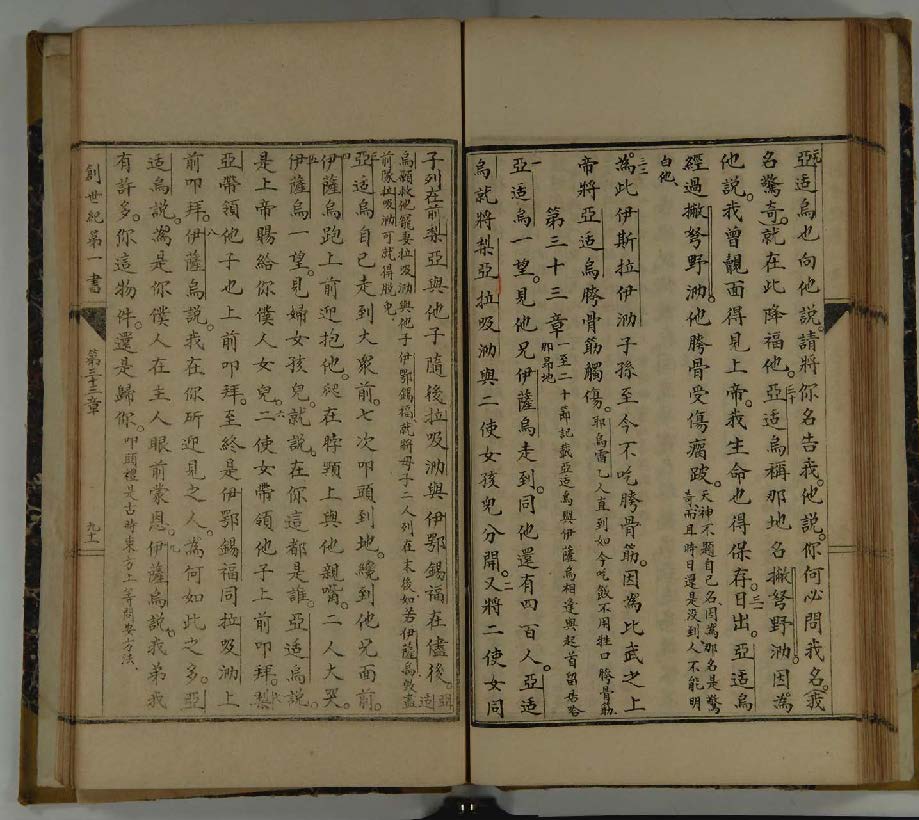 亞适烏也向他說。請將你名告我。他說。你何必問我名。我
名驚奇。就在此降福他。亞适烏稱那地名撇弩野泐。因為
他說。我曾覿面得見上帝。我生命也得保存。日出。亞适烏
經過撇弩野泐。他胯骨受傷瘸跛。天神不題自己名、因為那名是驚奇、而且時日還是沒到、人不能明
白他、
為此伊斯拉伊泐子孫至今不吃胯骨筋。因為比武之上
帝將亞适烏胯骨筋觸傷。耶烏雷乙人直到如今吃飯不用牲口胯骨筋、
第三十三章 一至二十節記載亞适烏與伊薩烏相逢與起首留居
亞适烏一望。見他兄伊薩烏走到。同他還有四百人。亞适
烏就將梨亞拉吸泐與二使女孩兒分開。又將二使女同
子列在前。梨亞與他子隨後。拉吸泐與伊鄂錫福在儘後。亞适
烏顧救他寵妻拉吸泐與他子伊鄂錫福、就將母子二人列在末後、如若伊薩烏
前隊、拉吸泐可就得脫免、
亞适烏自己走到大衆前。七次叩頭到地。纔到他兄面前。
伊薩烏跑上前迎抱他。爬在脖頸上與他親嘴。二人大哭。
伊薩烏一望。見婦女孩兒。就說。在你這都是誰。亞适烏說。
是上帝賜給你僕人女兒。二使女帶領他子上前叩拜。梨
亞帶領他子也上前叩拜。至終是伊鄂錫福同拉吸泐上
前叩拜。伊薩烏說。我在你所迎見之人。為何如此之多。亞
适烏說。為是你僕人在主人眼前蒙恩。伊薩烏說。我弟我
有許多。你這物件。還是歸你。叩頭禮是古時東方上等問安方法、
創世紀第一書
第三十三章
九十